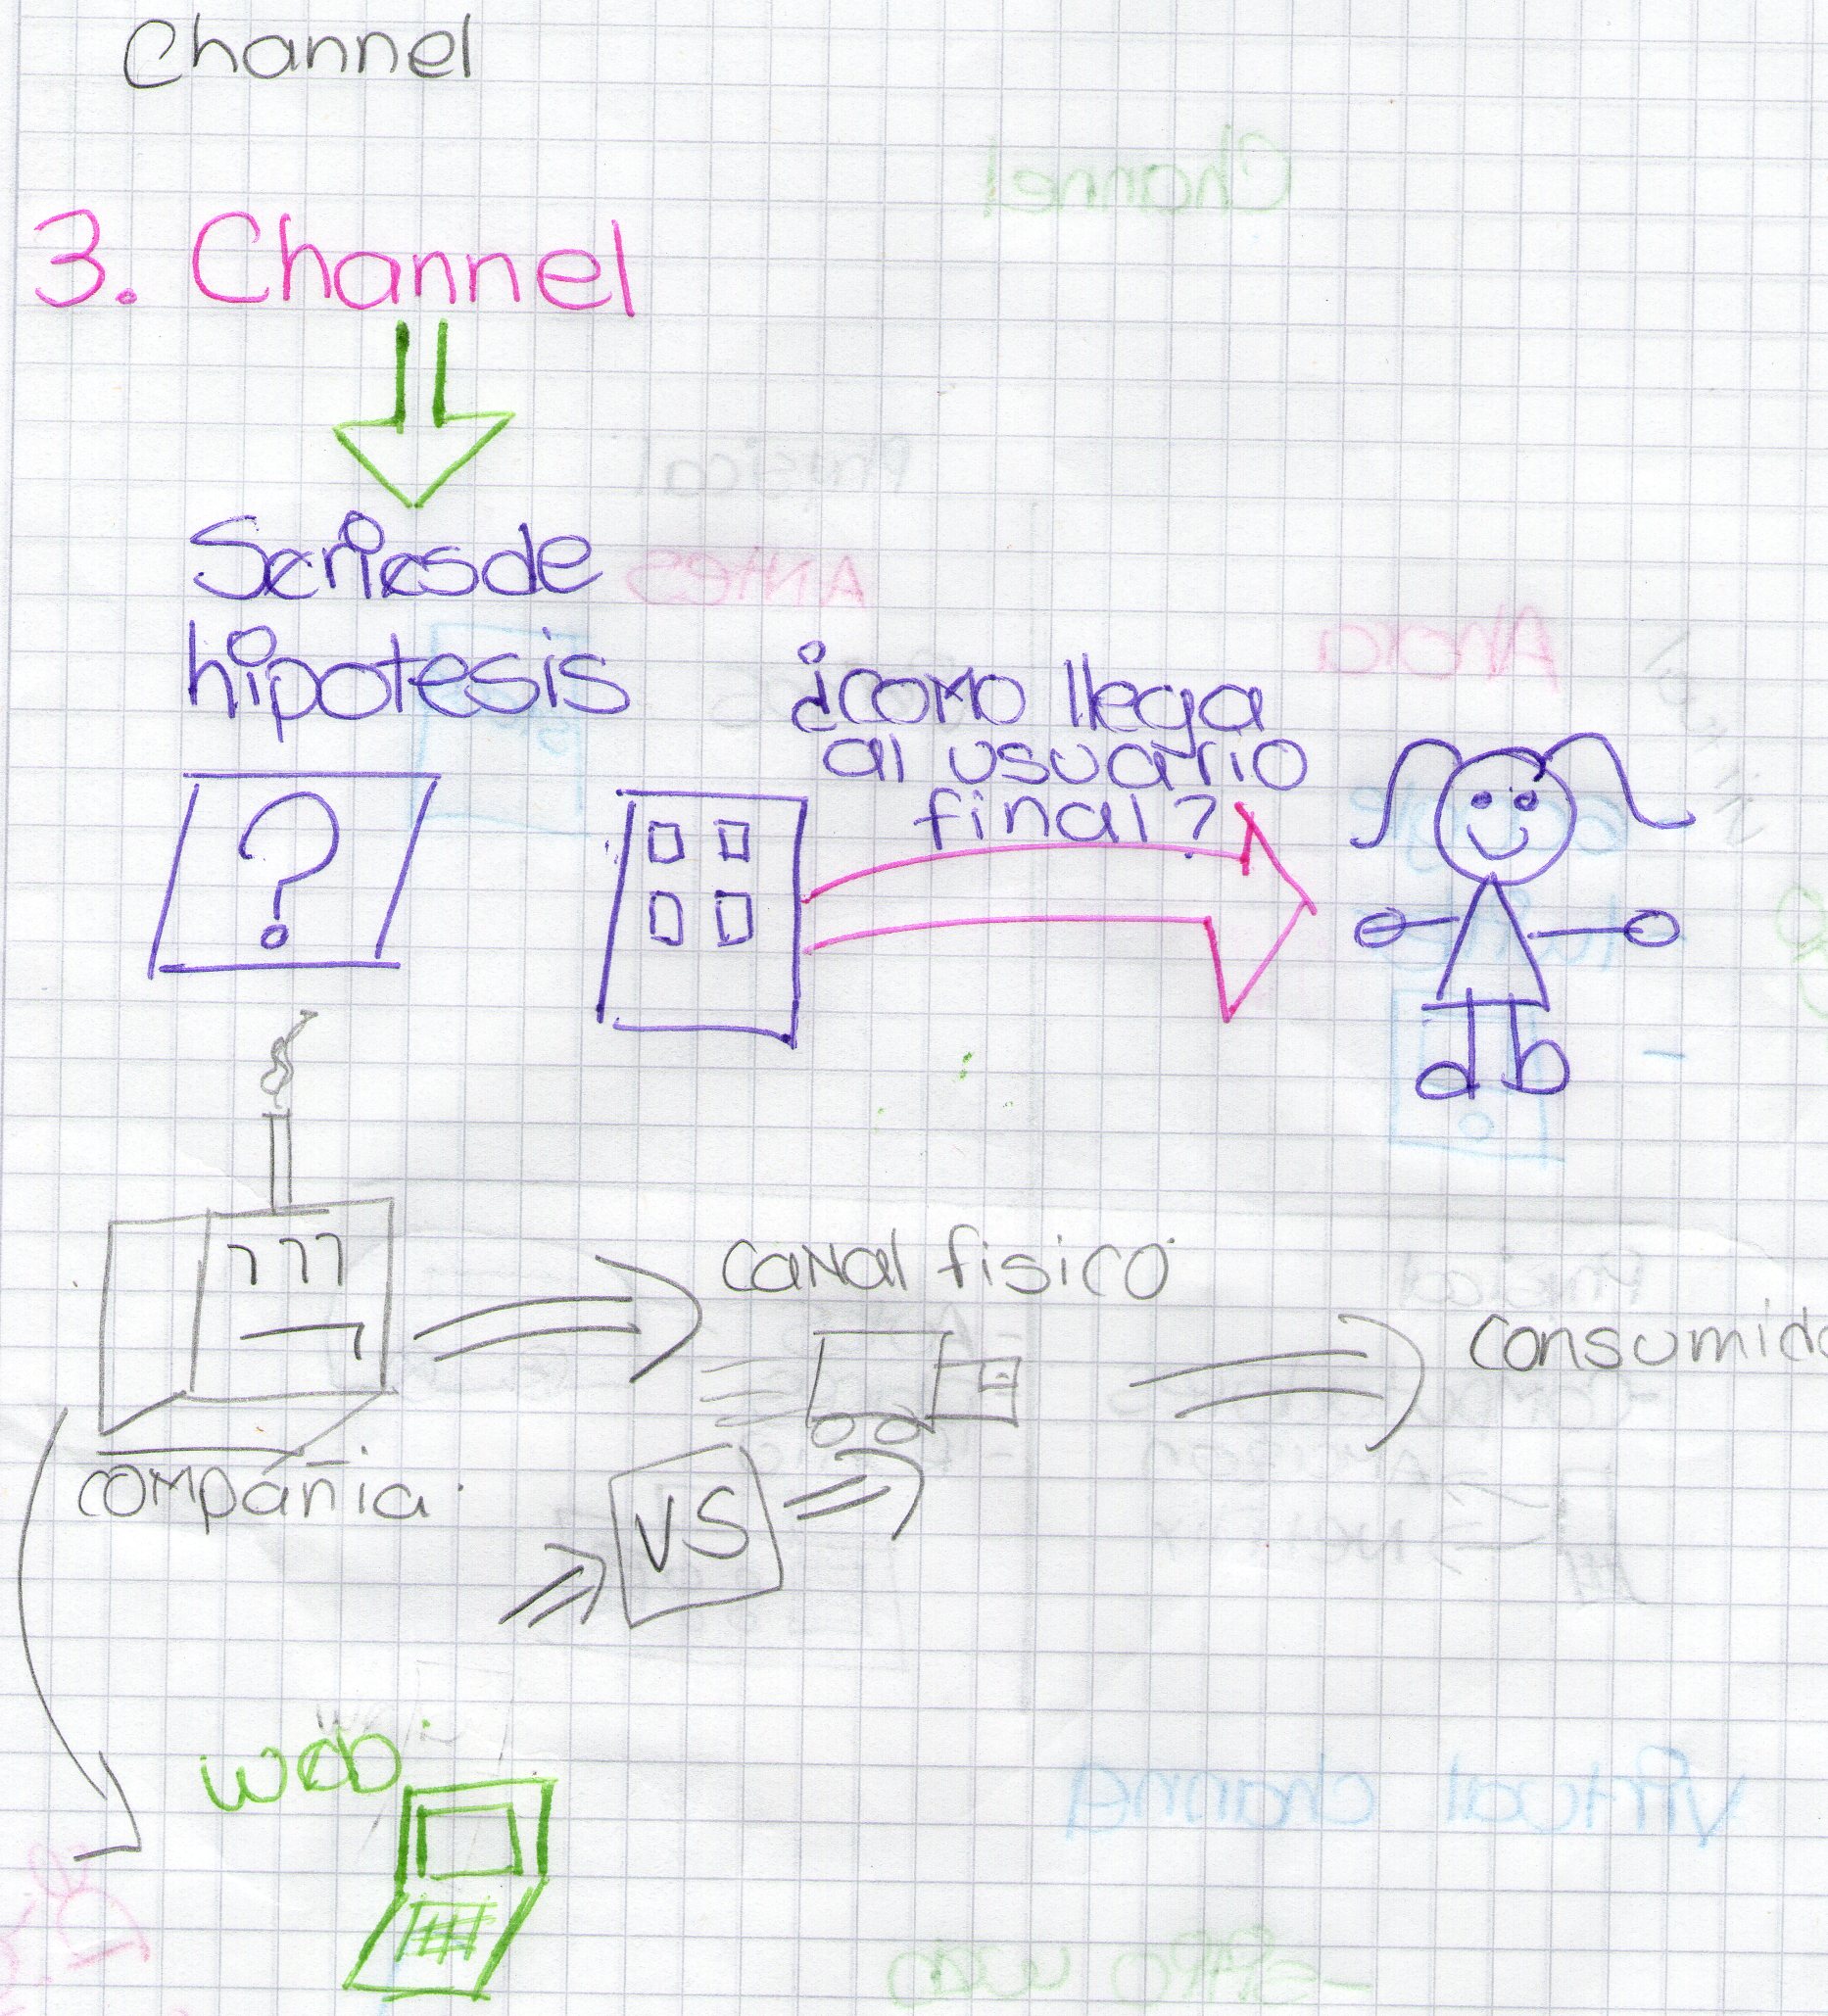 Channel
3. Channel
Series de
hipotesis
¿como llega
al usuario
final?
?
canal fisico
consumido
compañia
VS
web